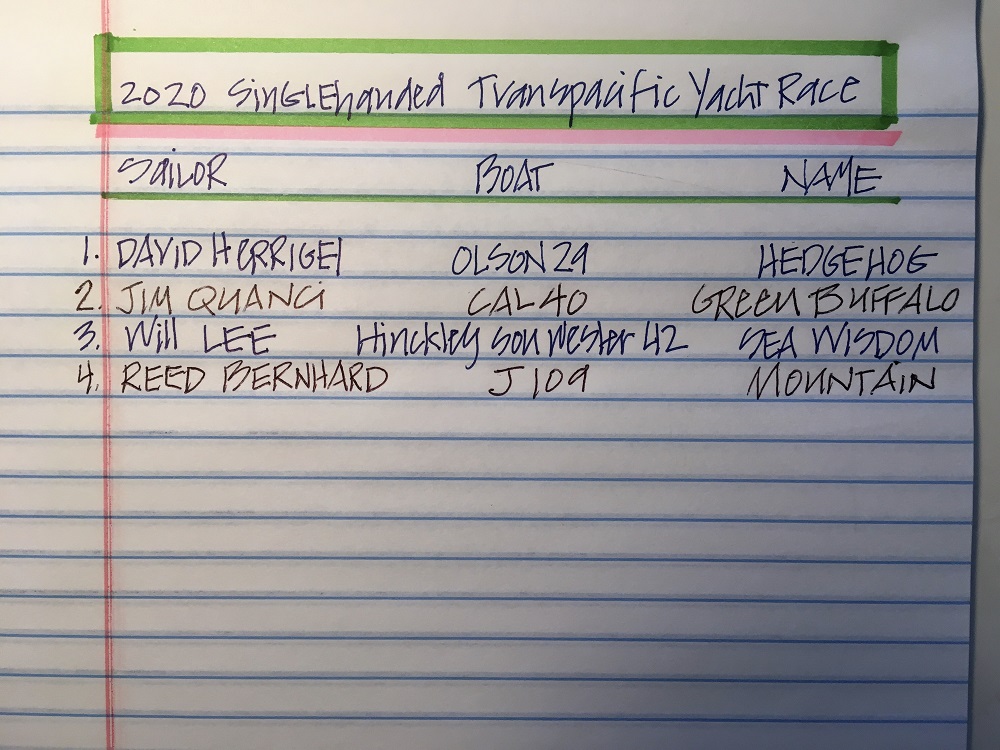 2020 SingLEhanded Transpacific Yacht Race
SAiLOR BOAT NAME
1. DAVID HERRIGEl OLSON 29 HEDGEHOG
2. JIM QUANCi CAL 40 GREEN BUFFALO
3. Will LEE Hinckley sou wester 42 SEA WISDOM
4. REED BERNHARD J109 MOUNTAiN